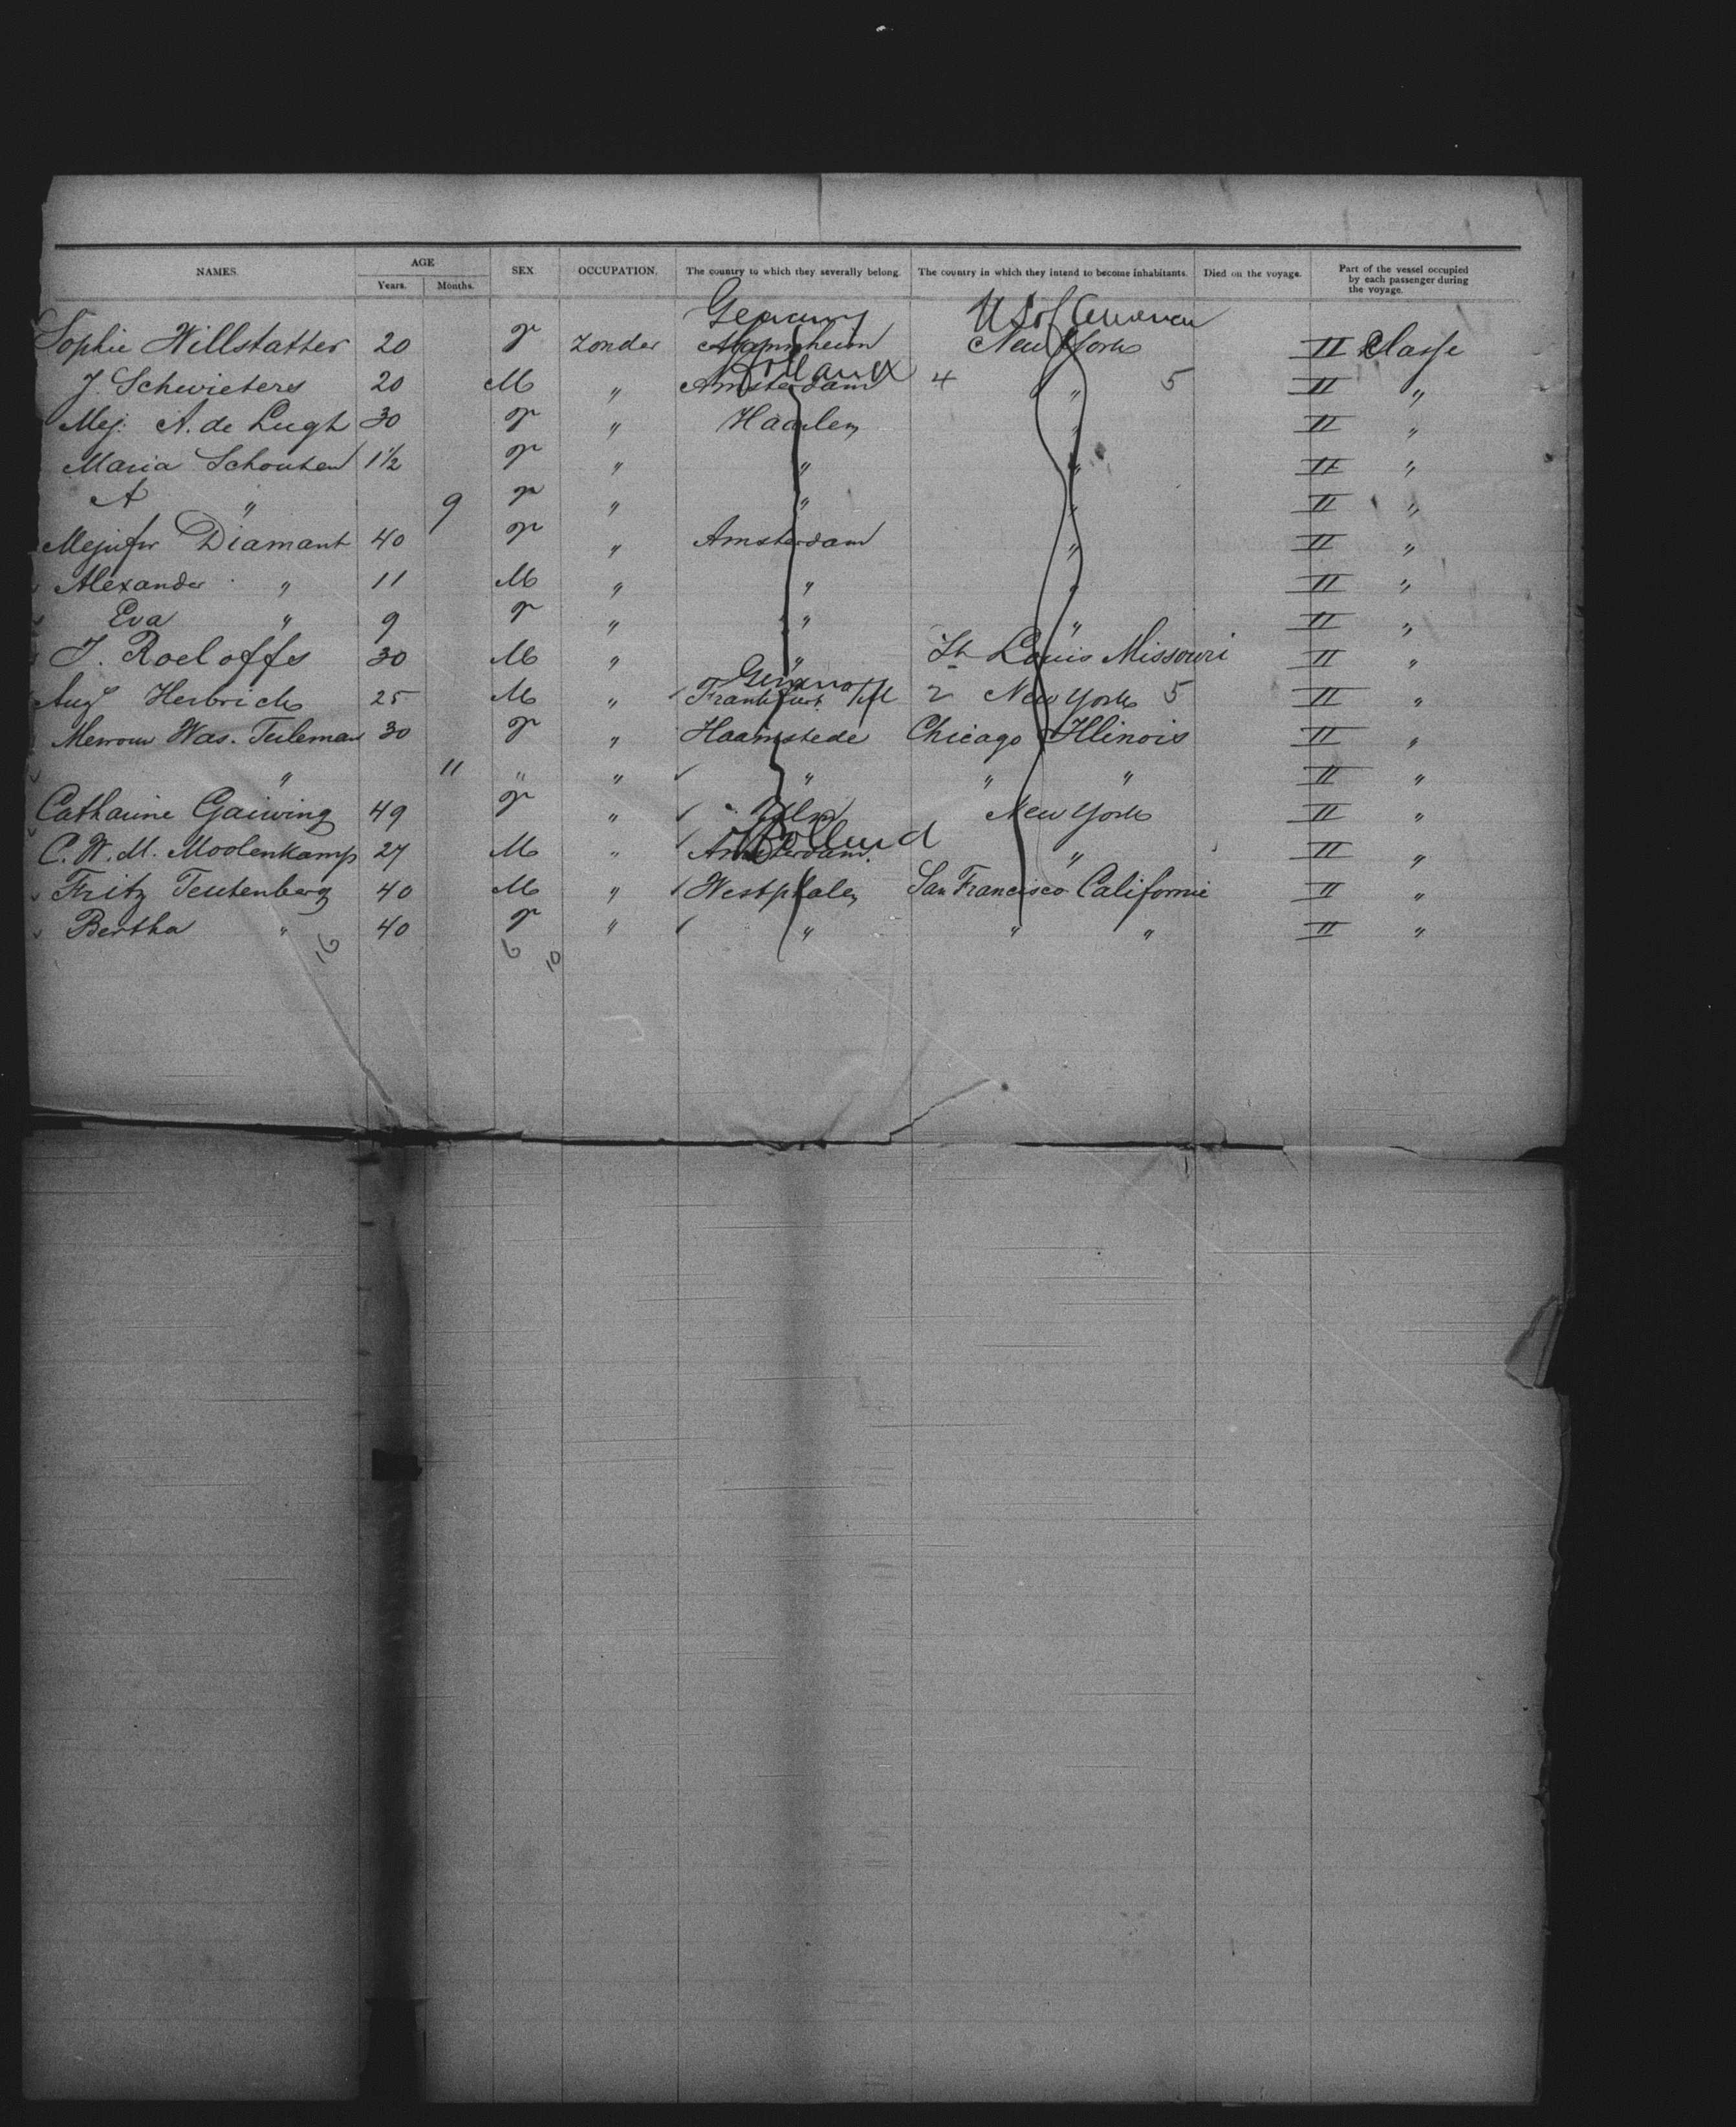 NAMES. AGE SEX OCCUPATION. The country to which they severally belong. The country in which they intend to become inhabitants. Died on the voyage. Part of the vessel occupied by each passenger during the voyage.
Years. Months.
Germany U S of America
Sophie Willstatter 20 F zonder Mannheim New York II Classe
Holland
J. Schwieters 20 M " Amsterdam 4 " 5 II "
Mej. A. de Lugt 30 F " Haarlem " II "
Maria Schouten 1½ F " " " II "
A " 9 F " " " II "
Mejufvr Diamant 40 F " Amsterdam " II "
Alexander " 11 M " " " II "
Eva " 9 F " " " II "
J. Roeloffs 30 M " " St Louis Missouri II "
Germany
Aug Herbrich 25 M " Frankfurt 2 New York 5 II "
Mevrouw Was. Teuleman 30 F " Haamstede Chicago Illinois II "
" 11 " " " " " II "
Catharine Gaiwing 49 F " Ulm New York II "
Holland
C. W. M. Moolenkamp 27 M " Amsterdam. " II "
Fritz Teutenberg 40 M " Westphalen San Francisco Californie II "
Bertha " 40 F " " " " II "
16 6 10